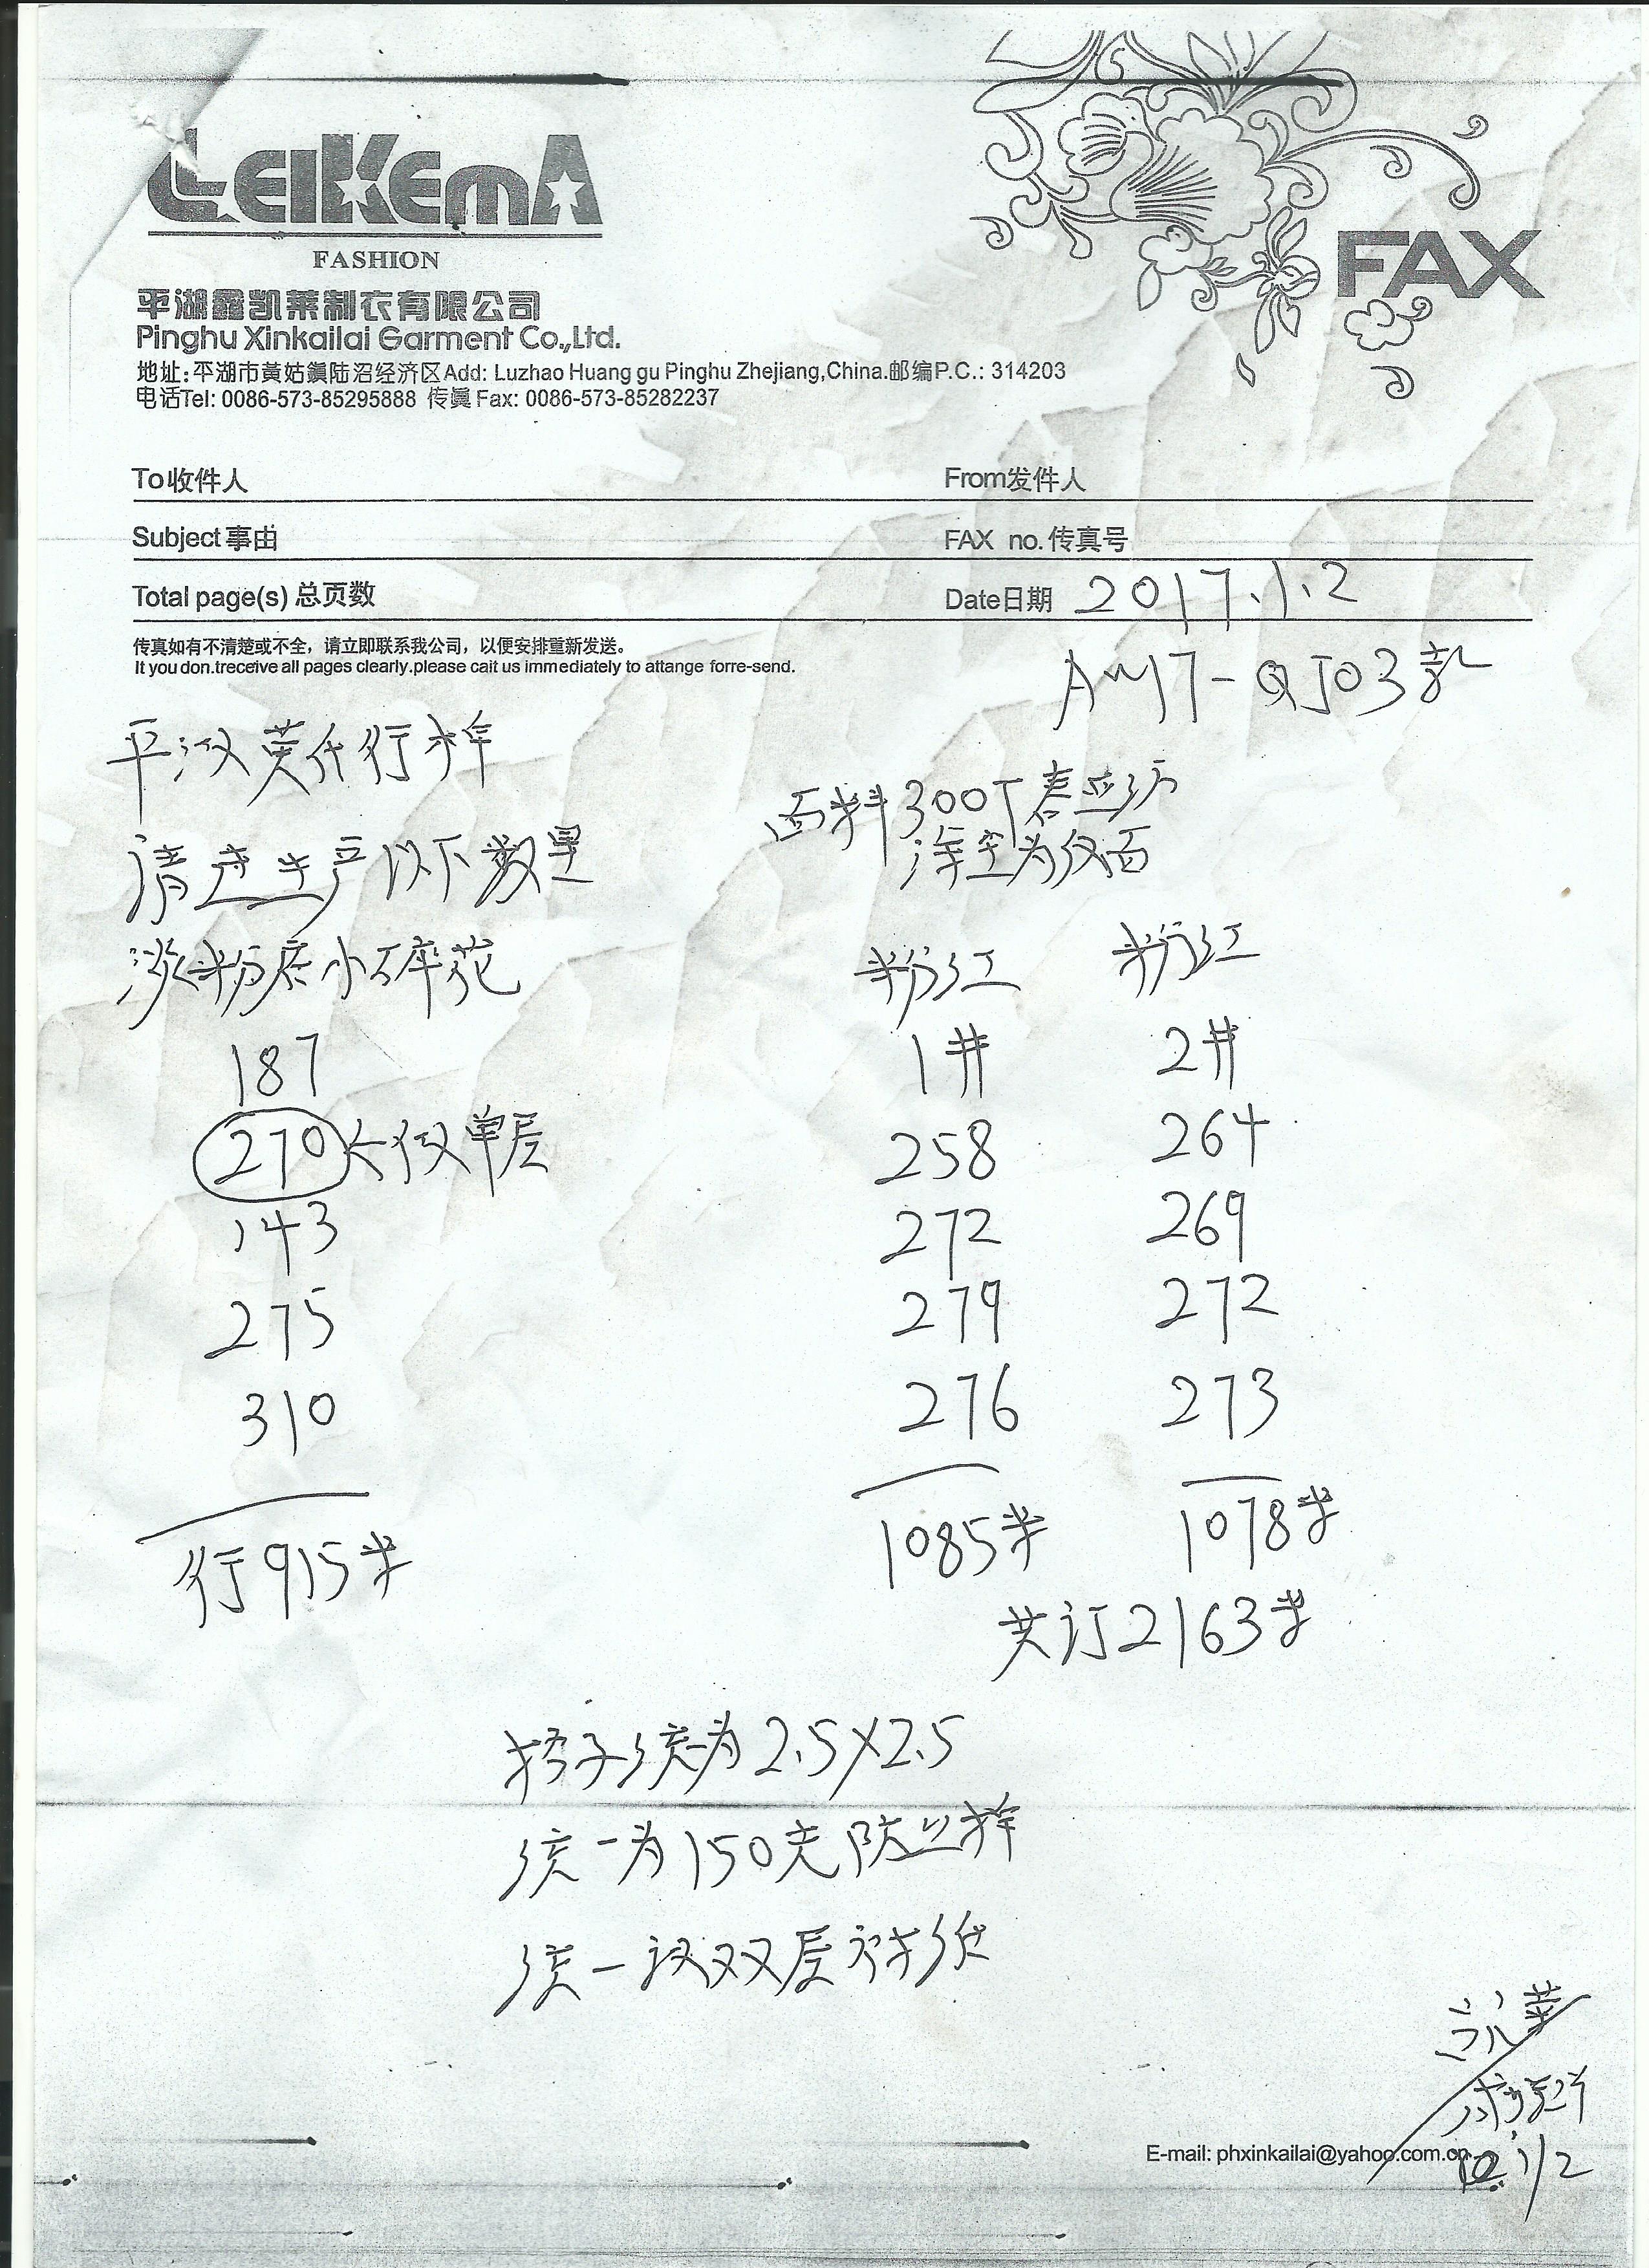 LEIKEMA
FASHION
FAX
平湖鑫凯莱制衣有限公司
Pinghu Xinkailai Garment Co.,Ltd.
地址:平湖市黄姑鎮陆沼经济区Add: Luzhao Huang gu Pinghu Zhejiang,China.邮编P.C.: 314203
电话Tel: 0086-573-85295888 传真 Fax: 0086-573-85282237
To收件人 From发件人
Subject 事由 FAX no.传真号
Total page(s) 总页数 Date日期 2017.1.2
传真如有不清楚或不全，请立即联系我公司，以便安排重新发送。
It you don.treceive all pages clearly.please cait us immediately to attange forre-send.
AW17-QJ03款
平汉英代行样
请速生产以下数量
面料300T春亚纺
涂层为反面
淡粉底小碎花
187
270 长仅单层
143
275
310
行915米
粉红 粉红
1# 2#
258 264
272 269
279 272
276 273
1085米 1078米
共订2163米
格子统为2.5X2.5
统一为150克
统一 双层衬纸
E-mail: phxinkailai@yahoo.com.cn